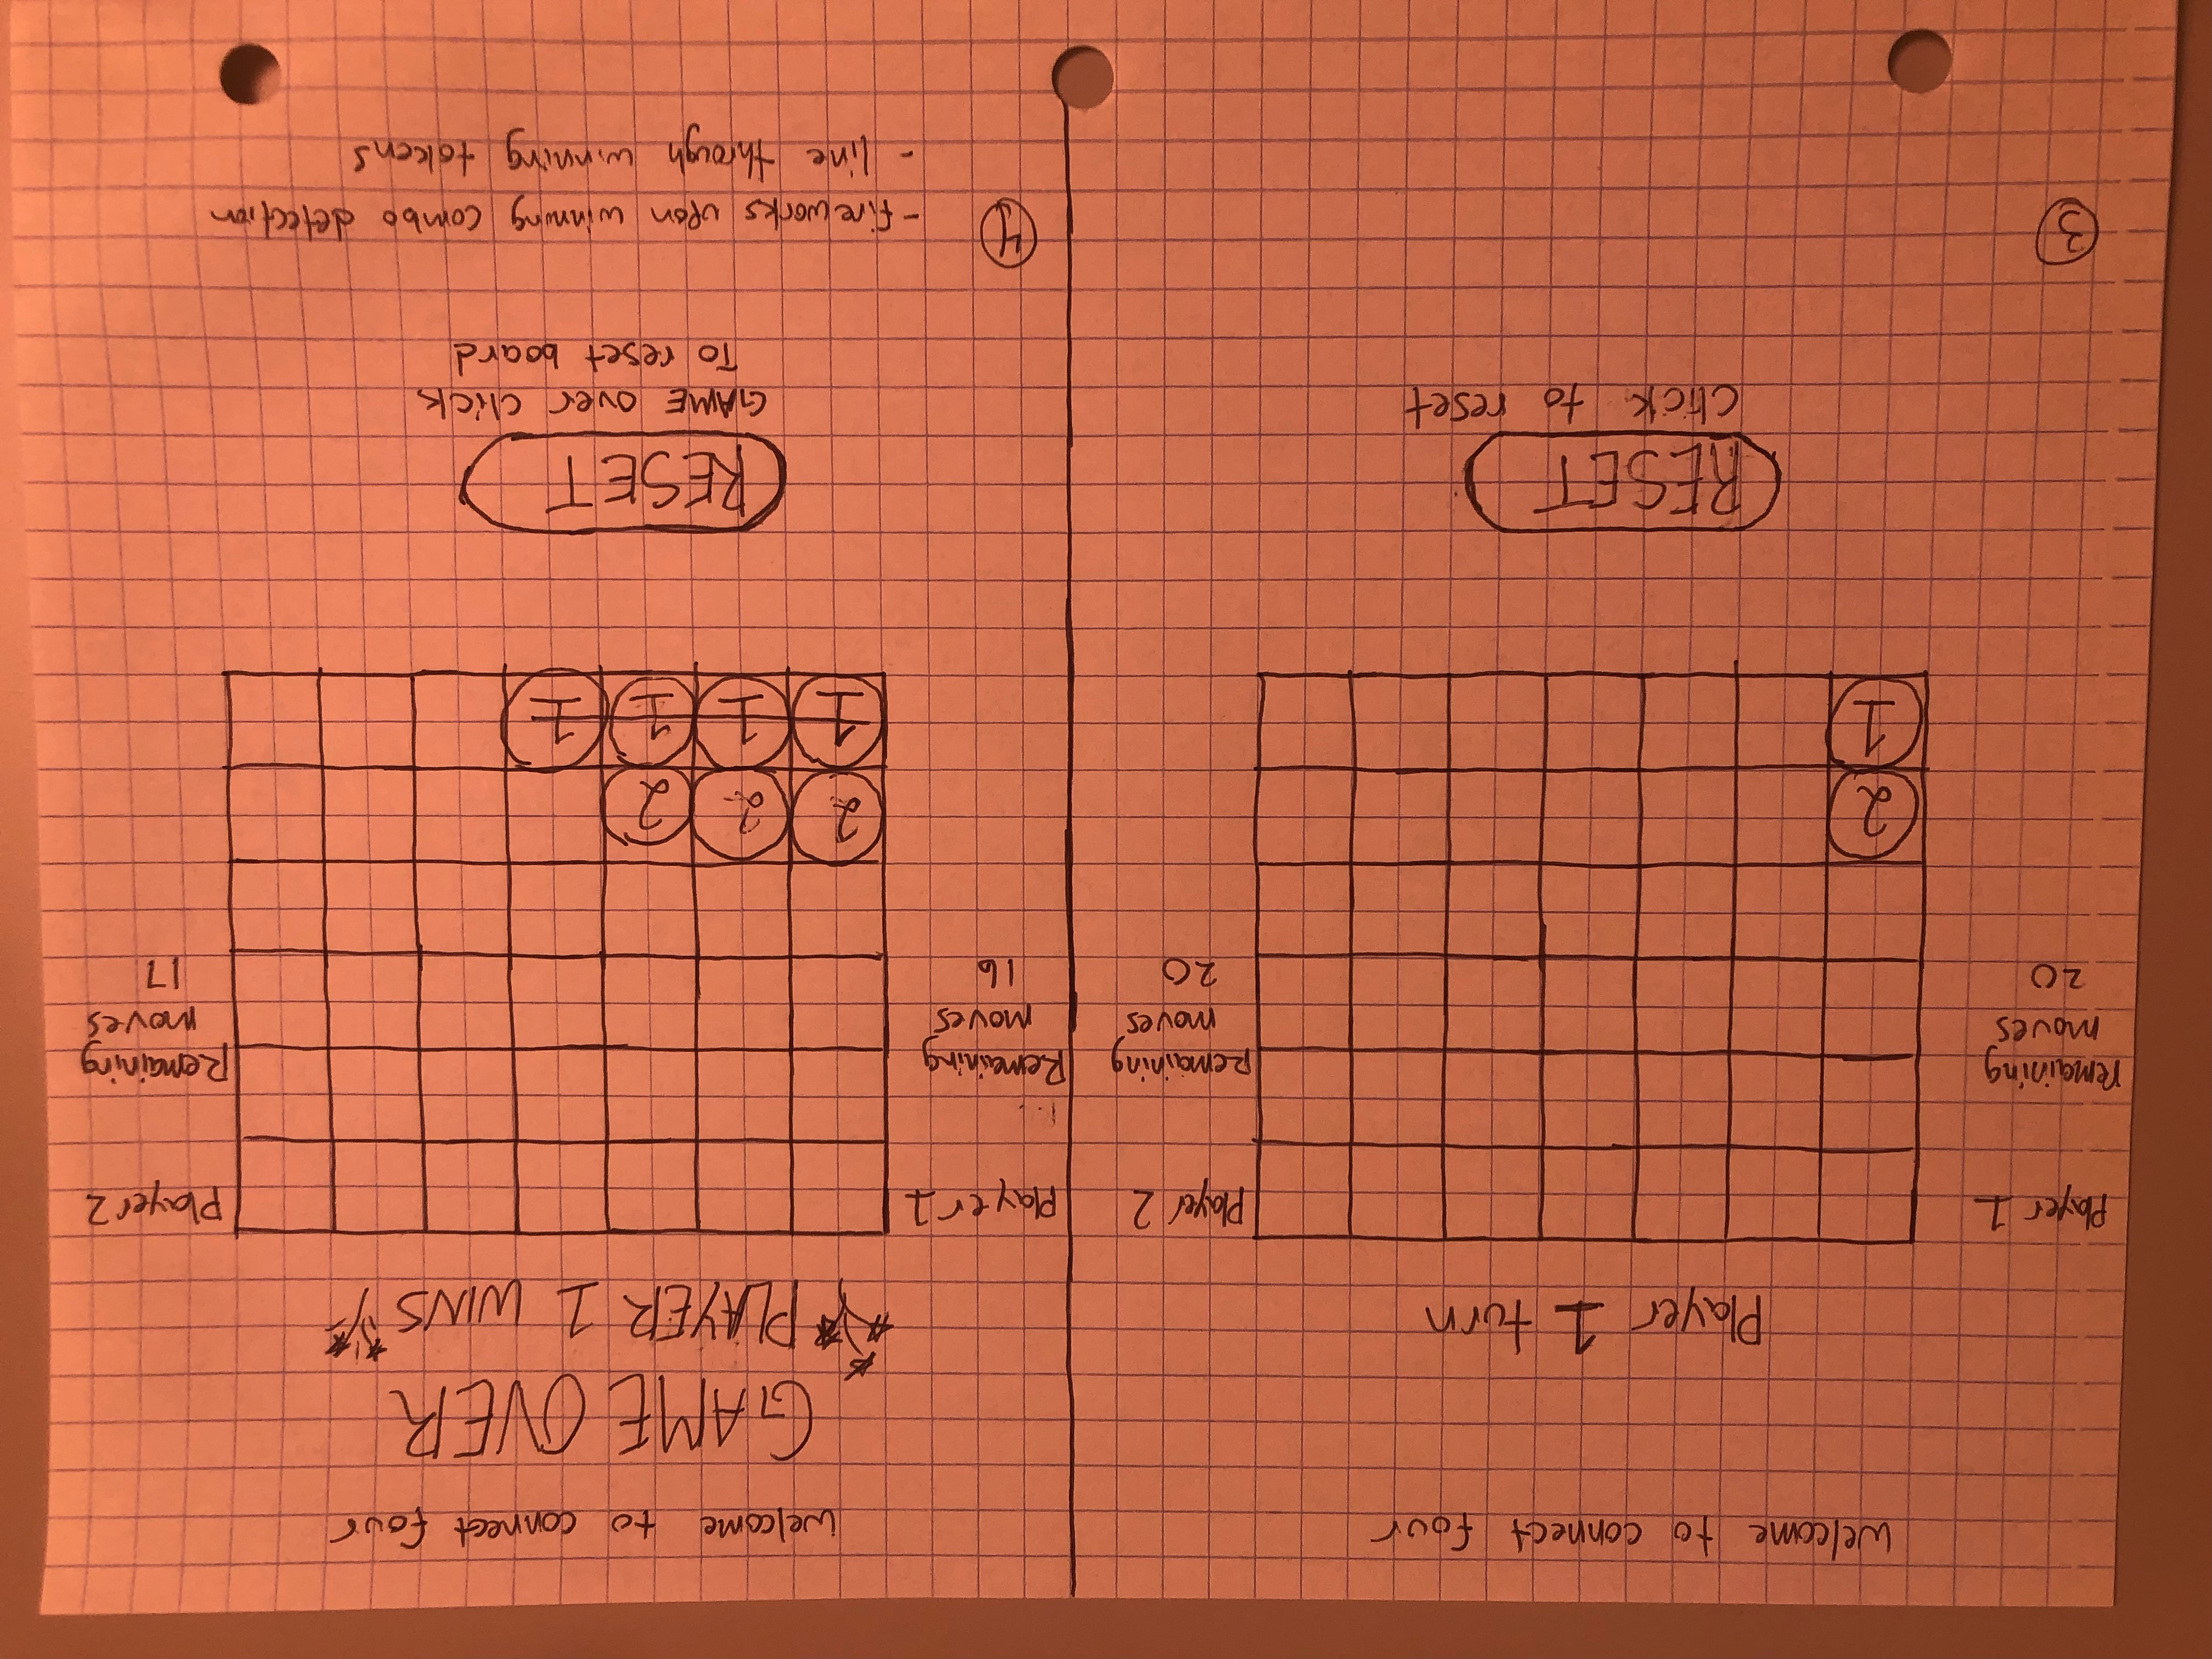 welcome to connect four
Player 1 turn
Player 1
Remaining
moves
20
Player 2
Remaining
moves
20
2
1
RESET
click to reset
3
welcome to connect four
GAME OVER
PLAYER 1 WINS
Player 1
Remaining
moves
16
Player 2
Remaining
moves
17
2 2 2
1 1 1 1
RESET
GAME over click
To reset board
4
- fireworks upon winning combo detection
- line through winning tokens